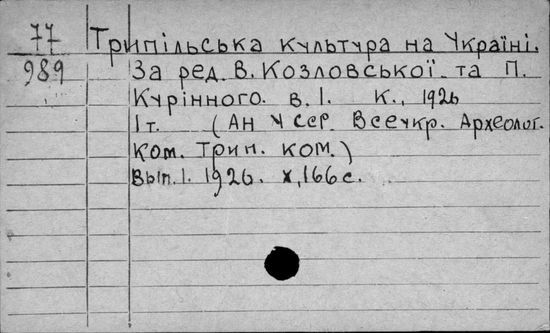 77 Трипільська культура на Україні.
989 За ред. В. Козловської та П.
Курінного. в. 1. К., 1926
1 т. (АН УССР. Всеукр. Археолог.
Ком. Трип. ком.)
Вып. 1. 1926. X, 166 с.